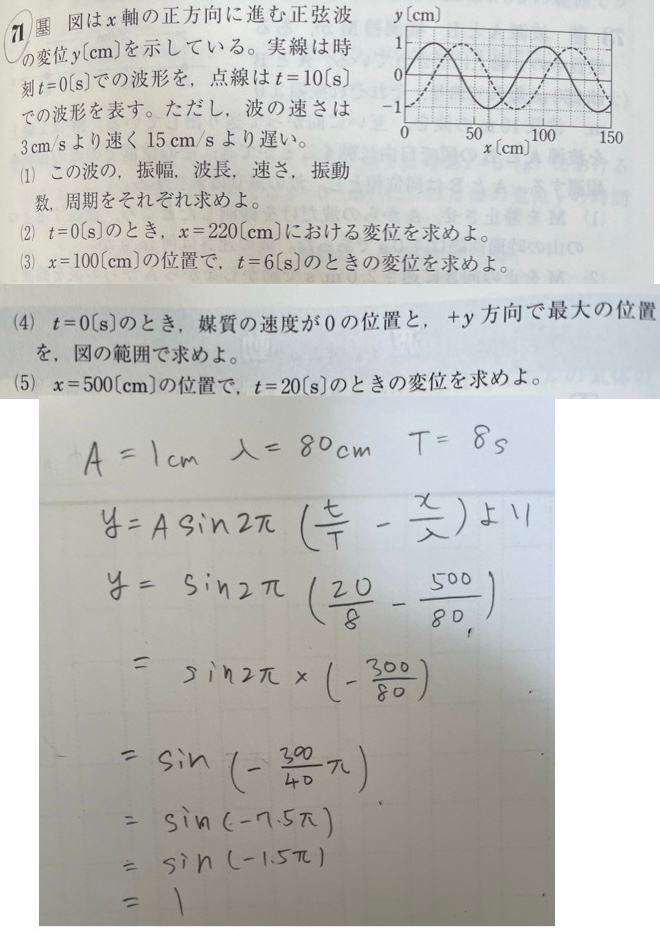 71 基 図はx軸の正方向に進む正弦波
の変位y〔cm〕を示している。実線は時
刻t=0〔s〕での波形を，点線はt=10〔s〕
での波形を表す。ただし，波の速さは
3cm/sより速く15cm/sより遅い。
(1) この波の，振幅，波長，速さ，振動
数，周期をそれぞれ求めよ。
(2) t=0〔s〕のとき，x=220〔cm〕における変位を求めよ。
(3) x=100〔cm〕の位置で，t=6〔s〕のときの変位を求めよ。
y〔cm〕
1
0
-1
0 50 100 150
x〔cm〕
(4) t=0〔s〕のとき，媒質の速度が0の位置と，+y方向で最大の位置
を，図の範囲で求めよ。
(5) x=500〔cm〕の位置で，t=20〔s〕のときの変位を求めよ。
A = 1cm λ = 80cm T = 8s
y = A sin2π (t/T - x/λ) より
y = sin2π (20/8 - 500/80)
= sin2π × (-300/80)
= sin (-300/40 π)
= sin(-7.5π)
= sin(-1.5π)
= 1